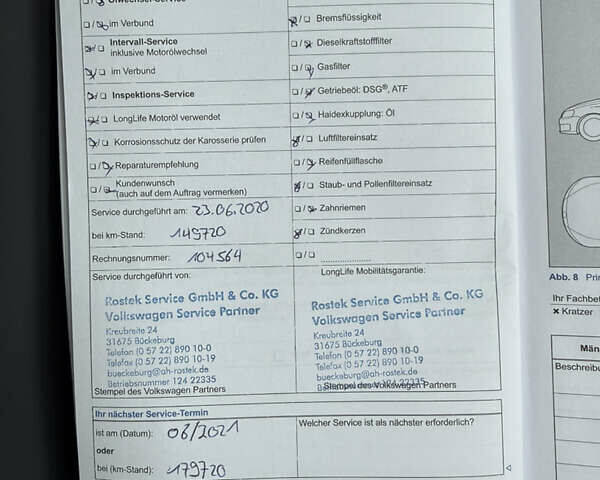 Ölwechsel-Service
im Verbund
Intervall-Service
inklusive Motorölwechsel
im Verbund
Inspektions-Service
LongLife Motoröl verwendet
Korrosionsschutz der Karosserie prüfen
Reparaturempfehlung
Kundenwunsch
(auch auf dem Auftrag vermerken)
Service durchgeführt am: 23.06.2020
bei km-Stand: 149720
Rechnungsnummer: 104564
Service durchgeführt von:
Rostek Service GmbH & Co. KG
Volkswagen Service Partner
Kreubreite 24
31675 Bückeburg
Telefon (0 57 22) 890 10-0
Telefax (0 57 22) 890 10-19
bueckeburg@ah-rostek.de
Betriebsnummer 124 22335
Stempel des Volkswagen Partners
Bremsflüssigkeit
Dieselkraftstofffilter
Gasfilter
Getriebeöl: DSG®, ATF
Haldexkupplung: Öl
Luftfiltereinsatz
Reifenfüllflasche
Staub- und Pollenfiltereinsatz
Zahnriemen
Zündkerzen
LongLife Mobilitätsgarantie:
Rostek Service GmbH & Co. KG
Volkswagen Service Partner
Kreubreite 24
31675 Bückeburg
Telefon (0 57 22) 890 10-0
Telefax (0 57 22) 890 10-19
bueckeburg@ah-rostek.de
124 22335
Stempel des Volkswagen Partners
Ihr nächster Service-Termin
ist am (Datum): 06/2021
oder
bei (km-Stand): 179720
Welcher Service ist als nächster erforderlich?
Abb. 8 Prin
Ihr Fachbet
× Kratzer
Män
Beschreibu